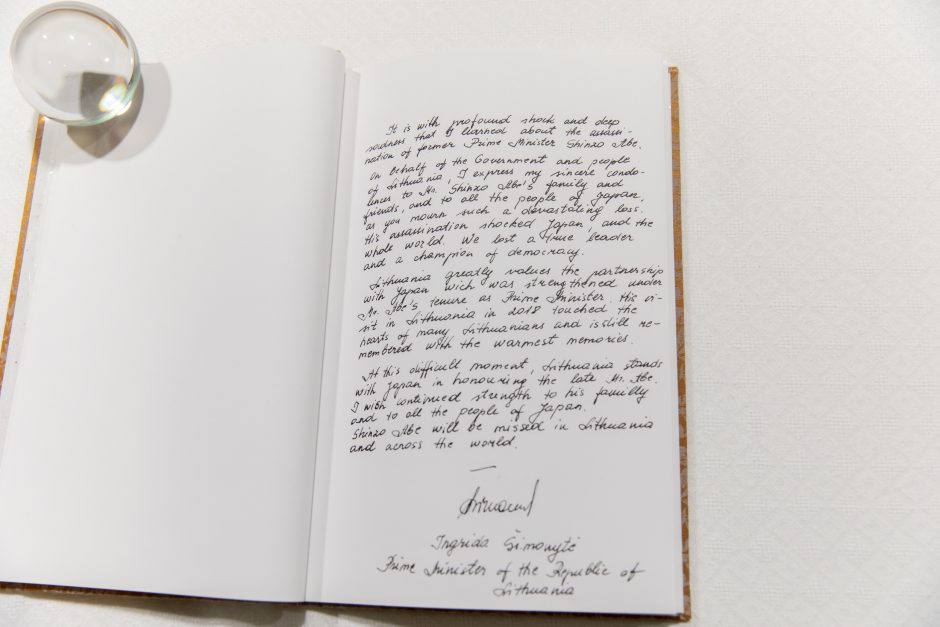 It is with profound shock and deep
sadness that I learned about the assassi-
nation of former Prime Minister Shinzo Abe.
On behalf of the Government and people
of Lithuania, I express my sincere condo-
lences to Mr. Shinzo Abe's family and
friends, and to all the people of Japan,
as you mourn such a devastating loss.
This assassination shocked Japan, and the
whole world. We lost a true leader
and a champion of democracy.
Lithuania greatly values the partnership
with Japan wich was strengthened under
Mr. Abe's tenure as Prime Minister. His vi-
sit in Lithuania in 2018 touched the
hearts of many Lithuanians and is still re-
membered with the warmest memories.
At this difficult moment, Lithuania stands
with Japan in honouring the late Mr. Abe.
I wish continued strength to his familly
and to all the people of Japan.
Shinzo Abe will be missed in Lithuania
and across the world.
—
Ingrida Šimonytė
Prime Minister of the Republic of
Lithuania